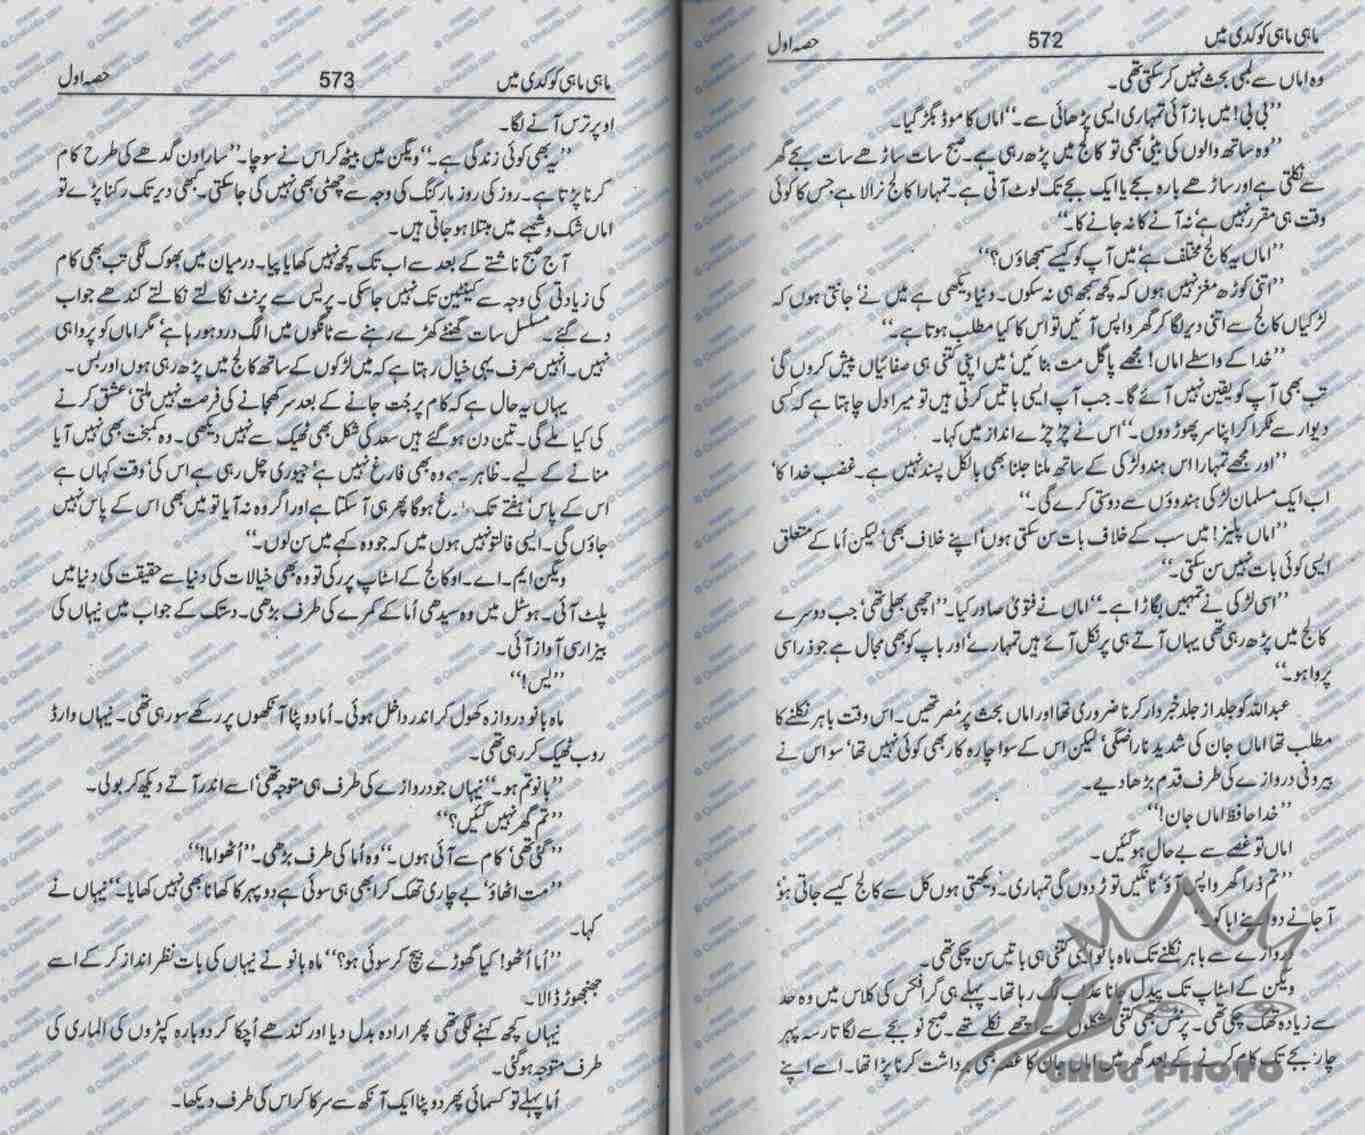 ماہی ماہی کوکدی میں 572 حصہ اول
وہ اماں سے لمبی بحث نہیں کر سکتی تھی۔
”بی بی! میں باز آئی تمہاری ایسی پڑھائی سے۔“ اماں کا موڈ بگڑ گیا۔
”وہ ساتھ والوں کی بیٹی بھی تو کالج میں پڑھ رہی ہے۔ صبح سات ساڑھے سات بجے گھر
سے نکلتی ہے اور ساڑھے بارہ بجے یا ایک بجے تک لوٹ آتی ہے۔ تمہارا کالج نرالا ہے جس کا کوئی
وقت ہی مقرر نہیں ہے‘ نہ آنے کا نہ جانے کا۔“
”اماں یہ کالج مختلف ہے‘ میں آپ کو کیسے سمجھاؤں؟“
”اتنی کوڑھ مغز نہیں ہوں کہ کچھ سمجھ ہی نہ سکوں۔ دنیا دیکھی ہے میں نے‘ جانتی ہوں کہ
لڑکیاں کالج سے اتنی دیر لگا کر گھر واپس آئیں تو اس کا کیا مطلب ہوتا ہے۔“
”خدا کے واسطے اماں! مجھے پاگل مت بنائیں‘ میں اپنی کتنی ہی صفائیاں پیش کروں گی‘
تب بھی آپ کو یقین نہیں آئے گا۔ جب آپ ایسی باتیں کرتی ہیں تو میرا دل چاہتا ہے کہ کسی
دیوار سے ٹکرا کر اپنا سر پھوڑ دوں۔“ اس نے چڑچڑے انداز میں کہا۔
”اور مجھے تمہارا اس ہندو لڑکی کے ساتھ ملنا جلنا بھی بالکل پسند نہیں ہے۔ غضب خدا کا‘
اب ایک مسلمان لڑکی ہندوؤں سے دوستی کرے گی۔“
”اماں پلیز! میں سب کے خلاف بات سن سکتی ہوں‘ اپنے خلاف بھی‘ لیکن اُما کے متعلق
ایسی کوئی بات نہیں سن سکتی۔“
”اسی لڑکی نے تمہیں بگاڑا ہے۔“ اماں نے فتویٰ صادر کیا۔ ”اچھی بھلی تھی‘ جب دوسرے
کالج میں پڑھ رہی تھی یہاں آتے ہی پر نکل آئے ہیں تمہارے‘ اور باپ کو بھی مجال ہے جو ذرا سی
پروا ہو۔“
عبداللہ کو جلد از جلد خبردار کرنا ضروری تھا اور اماں بحث پر مُصر تھیں۔ اس وقت باہر نکلنے کا
مطلب تھا اماں جان کی شدید ناراضگی‘ لیکن اس کے سوا چارہ کار بھی کوئی نہیں تھا‘ سو اس نے
بیرونی دروازے کی طرف قدم بڑھا دیے۔
”خدا حافظ اماں جان!“
اماں تو غصے سے بے حال ہوگئیں۔
”تم ذرا گھر واپس آؤ‘ ٹانگیں توڑ دوں گی تمہاری۔ دیکھتی ہوں کل سے کالج کیسے جاتی ہو‘
آ جانے دو اپنے ابا کو۔“
دروازے سے باہر نکلنے تک ماہ بانو ایسی کتنی ہی باتیں سن چکی تھی۔
ویگن کے اسٹاپ تک پیدل جانا عذاب لگ رہا تھا۔ پہلے ہی گرافکس کی کلاس میں وہ حد
سے زیادہ تھک چکی تھی۔ پرنٹس بھی کتنی مشکلوں سے اچھے نکلے تھے۔ صبح نو بجے سے لگاتار سہ پہر
چار بجے تک کام کرنے کے بعد گھر میں اماں جان کا غصہ بھی برداشت کرنا پڑا تھا۔ اسے اپنے
ماہی ماہی کوکدی میں 573 حصہ اول
اوپر ترس آنے لگا۔
”یہ بھی کوئی زندگی ہے۔“ ویگن میں بیٹھ کر اس نے سوچا۔ ”سارا دن گدھے کی طرح کام
کرنا پڑتا ہے۔ روز کی روز مارکنگ کی وجہ سے چھٹی بھی نہیں کی جاسکتی۔ کبھی دیر تک رکنا پڑے تو
اماں شک و شبہے میں مبتلا ہو جاتی ہیں۔
آج صبح ناشتے کے بعد سے اب تک کچھ نہیں کھایا پیا۔ درمیان میں بھوک لگی تب بھی کام
کی زیادتی کی وجہ سے کینٹین تک نہیں جاسکی۔ پریس سے پرنٹ نکالتے نکالتے کندھے جواب
دے گئے۔ مسلسل سات گھنٹے کھڑے رہنے سے ٹانگوں میں الگ درد ہو رہا ہے‘ مگر اماں کو پروا ہی
نہیں۔ انہیں صرف یہی خیال رہتا ہے کہ میں لڑکوں کے ساتھ کالج میں پڑھ رہی ہوں اور بس۔
یہاں یہ حال ہے کہ کام پر جُت جانے کے بعد سر کھجانے کی فرصت نہیں ملتی‘ عشق کرنے
کی کیا ملے گی۔ تین دن ہو گئے ہیں سعد کی شکل بھی ٹھیک سے نہیں دیکھی۔ وہ کمبخت بھی نہیں آیا
منانے کے لیے۔ ظاہر ہے وہ بھی فارغ نہیں ہے‘ جیوری چل رہی ہے اس کی‘ وقت کہاں ہے
اس کے پاس‘ ہفتے تک فارغ ہوگا پھر ہی آ سکتا ہے اور اگر وہ نہ آیا تو میں بھی اس کے پاس نہیں
جاؤں گی۔ ایسی فالتو نہیں ہوں میں کہ جو وہ کہے میں سن لوں۔“
ویگن ایم۔ اے۔ او کالج کے اسٹاپ پر رکی تو وہ بھی خیالات کی دنیا سے حقیقت کی دنیا میں
پلٹ آئی۔ ہوسٹل میں وہ سیدھی اُما کے کمرے کی طرف بڑھی۔ دستک کے جواب میں نیہاں کی
بیزار سی آواز آئی۔
”یس!“
ماہ بانو دروازہ کھول کر اندر داخل ہوئی۔ اُما دوپٹا آنکھوں پر رکھے سو رہی تھی۔ نیہاں وارڈ
روب ٹھیک کر رہی تھی۔
”بانو تم ہو۔“ نیہاں جو دروازے کی طرف ہی متوجہ تھی‘ اسے اندر آتے دیکھ کر بولی۔
”تم گھر نہیں گئیں؟“
”گئی تھی‘ کام سے آئی ہوں۔“ وہ اُما کی طرف بڑھی۔ ”اُٹھو اما!“
”مت اٹھاؤ‘ بے چاری تھک کر ابھی ہی سوئی ہے دوپہر کا کھانا بھی نہیں کھایا۔“ نیہاں نے
کہا۔
”اُما اُٹھو! کیا گھوڑے بیچ کر سوئی ہو؟“ ماہ بانو نے نیہاں کی بات نظر انداز کر کے اسے
جھنجھوڑ ڈالا۔
نیہاں کچھ کہنے لگی تھی پھر ارادہ بدل دیا اور کندھے اُچکا کر دوبارہ کپڑوں کی الماری کی
طرف متوجہ ہوگئی۔
اُما پہلے تو کسمسائی پھر دوپٹا ایک آنکھ سے سرکا کر اس کی طرف دیکھا۔
URDU PHOTO